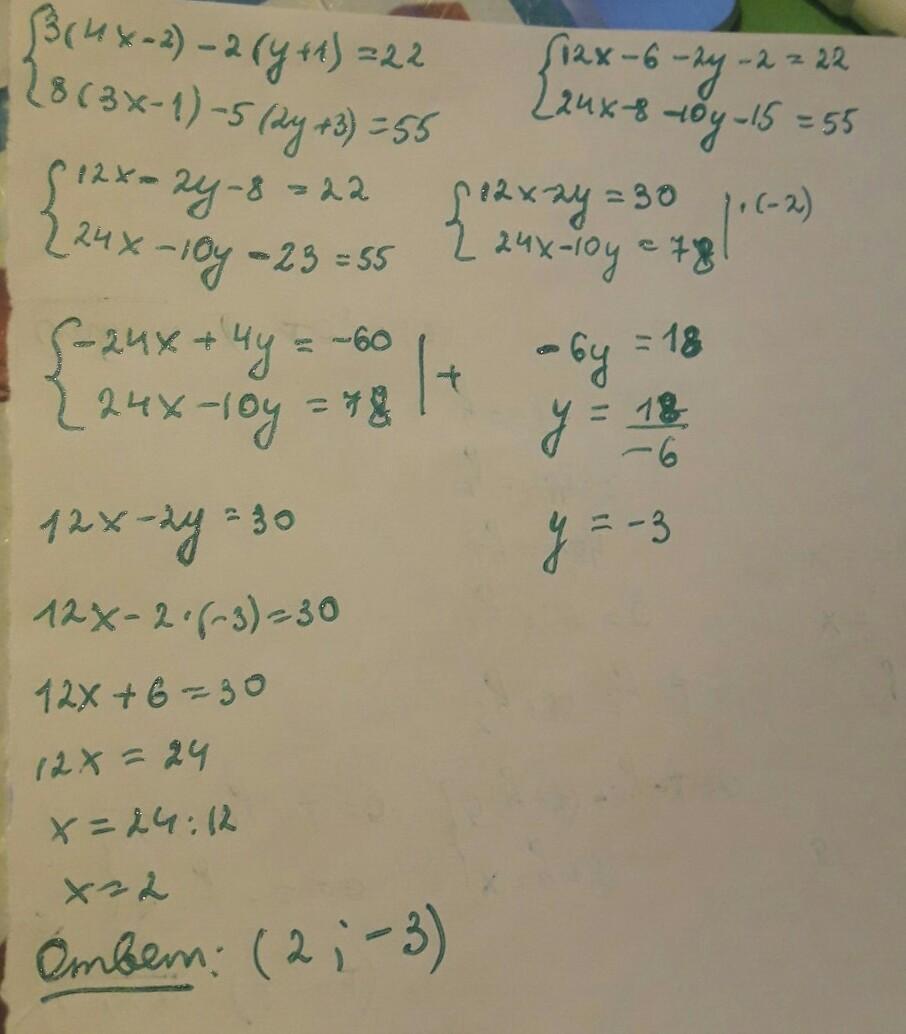 {3(4x-2)-2(y+1)=22
{8(3x-1)-5(2y+3)=55
{12x-6-2y-2=22
{24x-8-10y-15=55
{12x-2y-8=22
{24x-10y-23=55
{12x-2y=30 |·(-2)
{24x-10y=78
{-24x+4y=-60 |+
{24x-10y=78
-6y=18
y=18/-6
y=-3
12x-2y=30
12x-2·(-3)=30
12x+6=30
12x=24
x=24:12
x=2
Ответ: (2;-3)